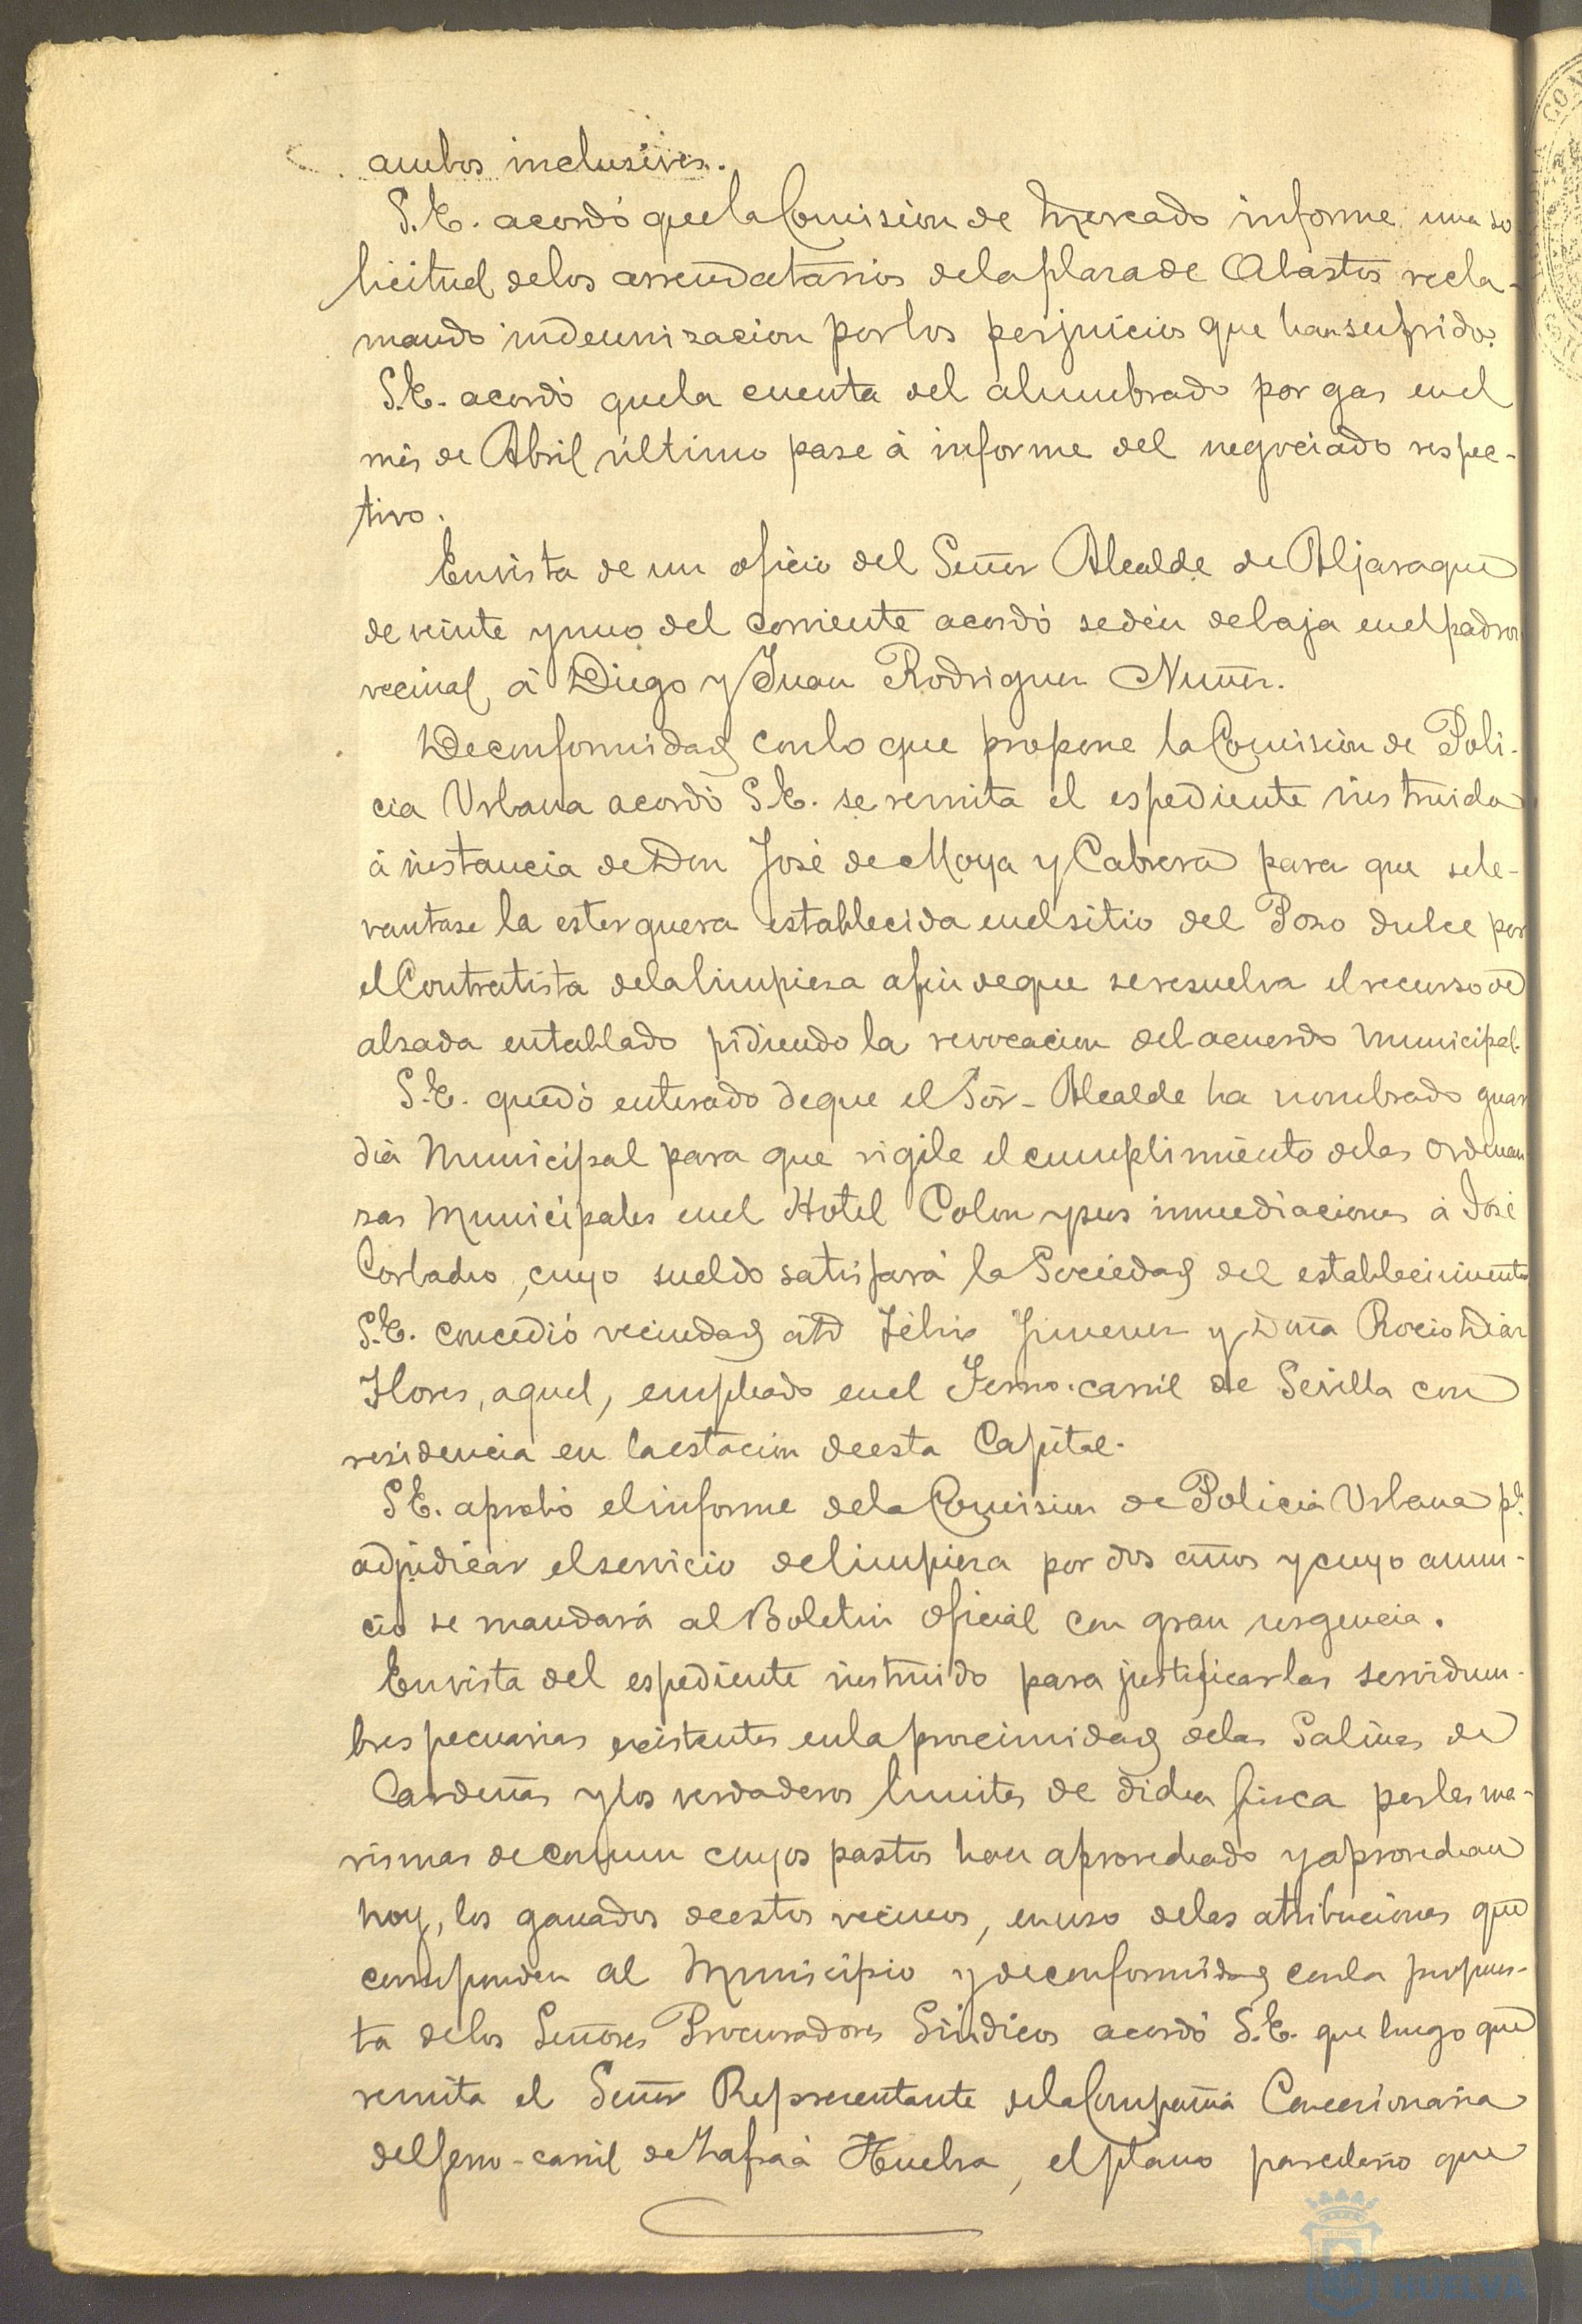 ambos inclusives.
S.E. acordó que la Comision de Mercado informe una so
licitud de los arrendatarios de la plaza de Abastos recla-
mando indemnizacion por los perjuicios que han sufrido.
S.E. acordó que la cuenta del alumbrado por gas en el
mes de Abril último pase á informe del negociado respec-
tivo.
En vista de un oficio del Señor Alcalde de Aljaraque
de veinte y uno del corriente acordó se dén de baja en el padron
vecinal, á Diego y Juan Rodriguez Nuñez.
De conformidad con lo que propone la Comision de Poli-
cia Urbana acordó S.E. se remita el espediente instruido
á instancia de Don José de Moya y Cabrera para que se le-
vantase la esterquera establecida en el sitio del Pozo dulce por
el Contratista de la limpieza a fin de que se resuelva el recurso de
alzada entablado pidiendo la revocacion del acuerdo Municipal.
S.E. quedó enterado de que el Sõr. Alcalde ha nombrado guar
dia Municipal para que vigile el cumplimiento de las Ordenan
zas Municipales en el Hotel Colon y sus inmediaciones á José
Corbacho, cuyo sueldo satisfará la Sociedad del establecimiento
S.E. concedió vecindad á D Félix Jimenez y Dña Rocio Diaz
Flores, aquel, empleado en el Ferro-carril de Sevilla con
residencia en la estacion de esta Capital.
S.E. aprobó el informe de la Comision de Policia Urbana pª
adjudicar el servicio de limpieza por dos años y cuyo anun-
cio se mandará al Boletin oficial con gran urgencia.
En vista del espediente instruido para justificar las servidum-
bres pecuarias existentes en la proximidad de las Salinas de
Cardeñas y los verdaderos limites de dicha finca por las ma-
rismas de comun cuyos pastos han aprovechado y aprovechan
hoy, los ganados de estos vecinos, en uso de las atribuciones que
corresponden al Municipio y de conformidad con la propues-
ta de los Señores Procuradores Síndicos acordó S.E. que luego que
remita el Señor Representante de la Compañia Concesionaria
del ferro-carril de Zafra á Huelva, el plano parcelario que
HUELVA